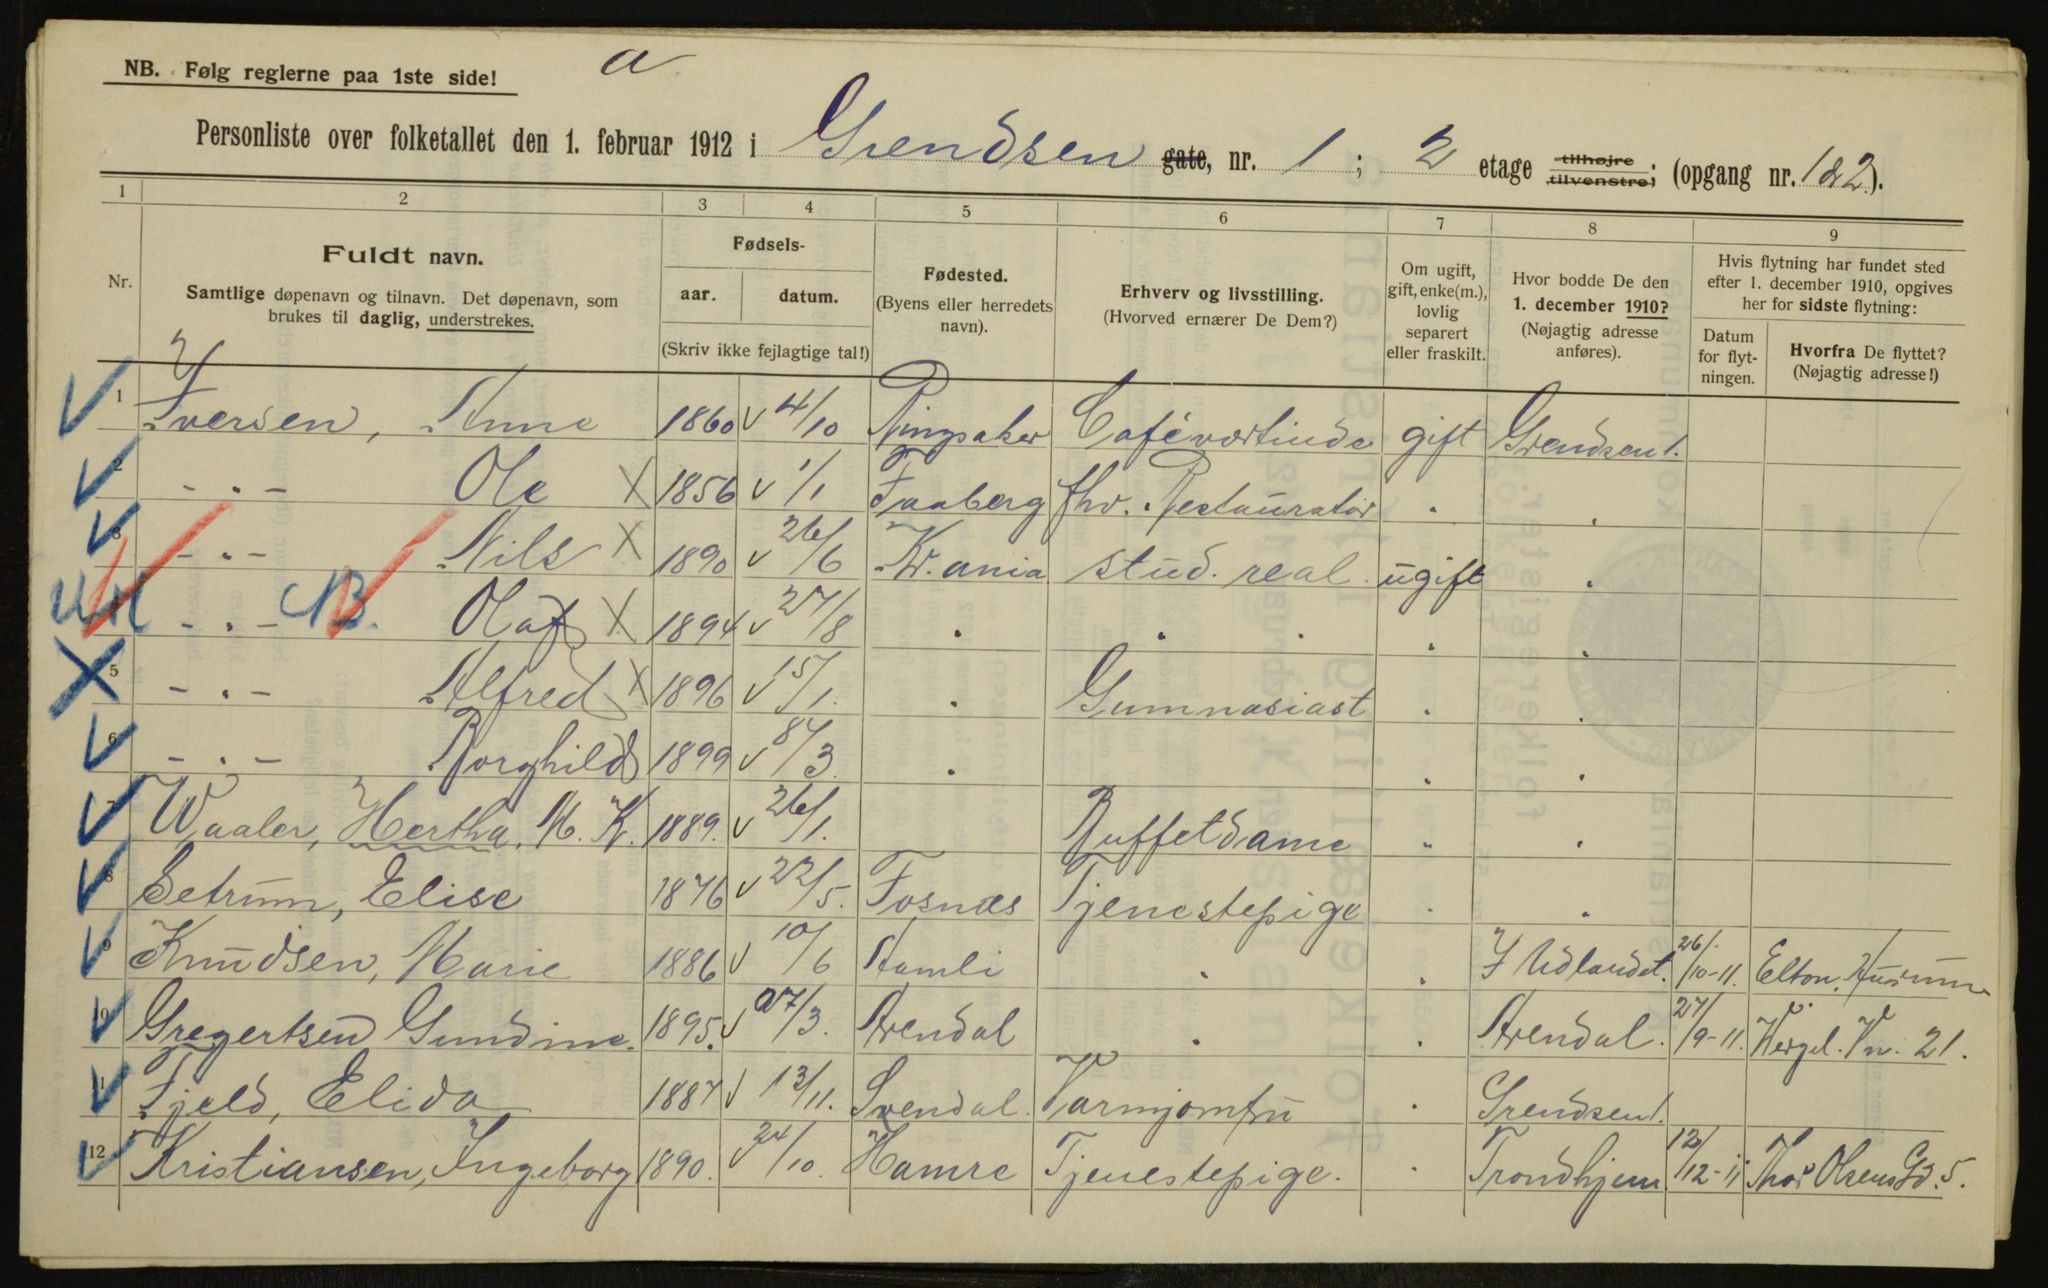 NB. Følg reglerne paa 1ste side!
a
Personliste over folketallet den 1. februar 1912 i Grendsen gate, nr. 1; 2 etage tilhøjre tilvenstre; (opgang nr. 1 & 2).
1 2 3 4 5 6 7 8 9
Nr.
Fuldt navn.
Samtlige døpenavn og tilnavn. Det døpenavn, som
brukes til daglig, understrekes.
Fødsels-
aar. datum.
(Skriv ikke fejlagtige tal!)
Fødested.
(Byens eller herredets
navn).
Erhverv og livsstilling.
(Hvorved ernærer De Dem?)
Om ugift,
gift, enke(m.),
lovlig
separert
eller fraskilt.
Hvor bodde De den
1. december 1910?
(Nøjagtig adresse
anføres).
Hvis flytning har fundet sted
efter 1. december 1910, opgives
her for sidste flytning:
Datum
for flyt-
ningen.
Hvorfra De flyttet?
(Nøjagtig adresse!)
1 Iversen, Anne 1860 v 4/10 Ringsaker Cafévortinde gift Grendsen 1.
2 - " - Ole X 1856 v 1/1 Faaberg fhv. Restauratør " "
3 - " - Nils X 1890 v 26/6 Kr.ania stud. real. ugift "
- " - NB. Olaf X 1894 v 27/8 " " " " "
5 - " - Alfred X 1896 v 15/1. " Gumnasiast " "
6 - " - Borghild 1899 v /3. " " "
7 Waaler, Hertha. M. K. 1889. v 26/1. Buffetdame " "
8 Setrum, Elise 1876 v 22/5. Fosnæs Tjenestepige " "
9 Knudsen, Marie 1886 v 10/6 Aamli " " I Udlandet. 26/10-11. Elton, Hurum
10 Gregertsen Gundine. 1895. v 27/3. Arendal " " Arendal. 27/9-11. Hergel. Vn. 21.
11 Fjeld, Elida 1887 v 13/11. Svendal. Varmjomfru " Grendsen 1.
12 Kristiansen, Ingeborg 1890. v 24/10. Hamre Tjenestepige. " Trondhjem. 12/12-11 Thor Olsens Gd. 5.